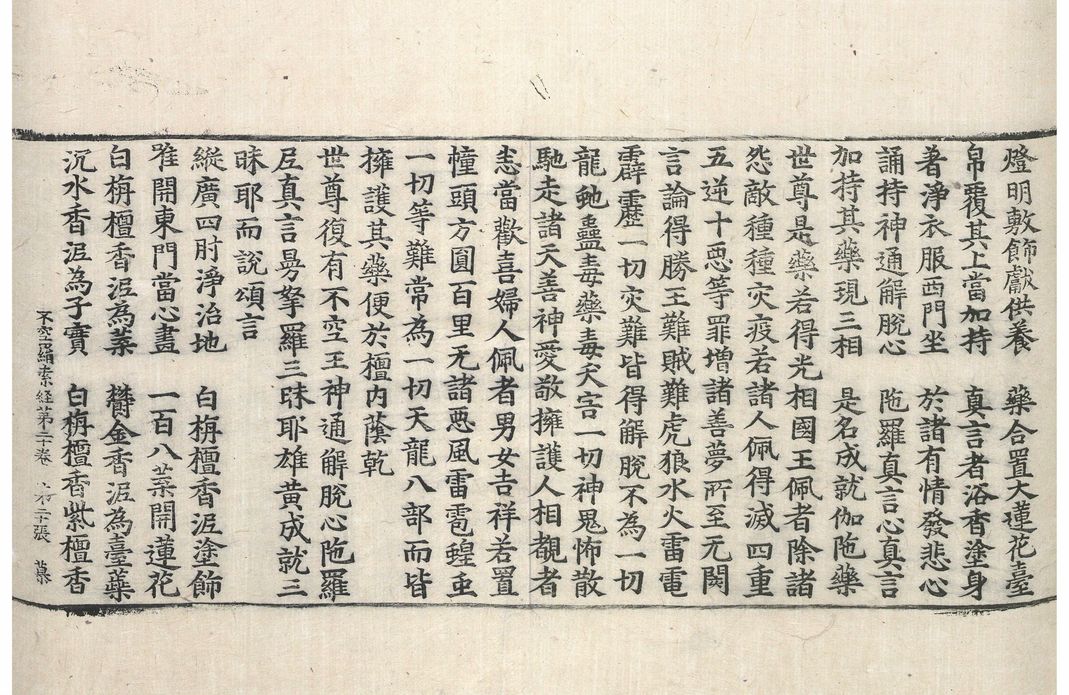 燈明敷飾獻供養　藥合置大蓮花臺
帛覆其上當加持　真言者浴香塗身
著淨衣服西門坐　於諸有情發悲心
誦持神通解脫心　陁羅真言心真言
加持其藥現三相　是名成就伽陁藥
世尊是藥若得光相國王佩者除諸
怨敵種種灾疫若諸人佩得滅四重
五逆十惡等罪增諸善夢所至无閡
言論得勝王難賊難虎狼水火雷電
霹靂一切灾難皆得解脫不為一切
龍虵蠱毒藥毒夭害一切神鬼怖散
馳走諸天善神愛敬擁護人相覩者
悉當歡喜婦人佩者男女吉祥若置
幢頭方圓百里无諸惡風雷雹蝗虫
一切等難常為一切天龍八部而皆
擁護其藥便於檀內蔭乾
世尊復有不空王神通解脫心陁羅
尼真言曼拏羅三昧耶雄黃成就三
昧耶而說頌言
縱廣四肘淨治地　白栴檀香泥塗飾
唯開東門當心畫　一百八葉開蓮花
白栴檀香泥為葉　欝金香泥為臺蘂
沉水香泥為子實　白栴檀香紫檀香
不空羂索經第二十卷　第二十張　幕